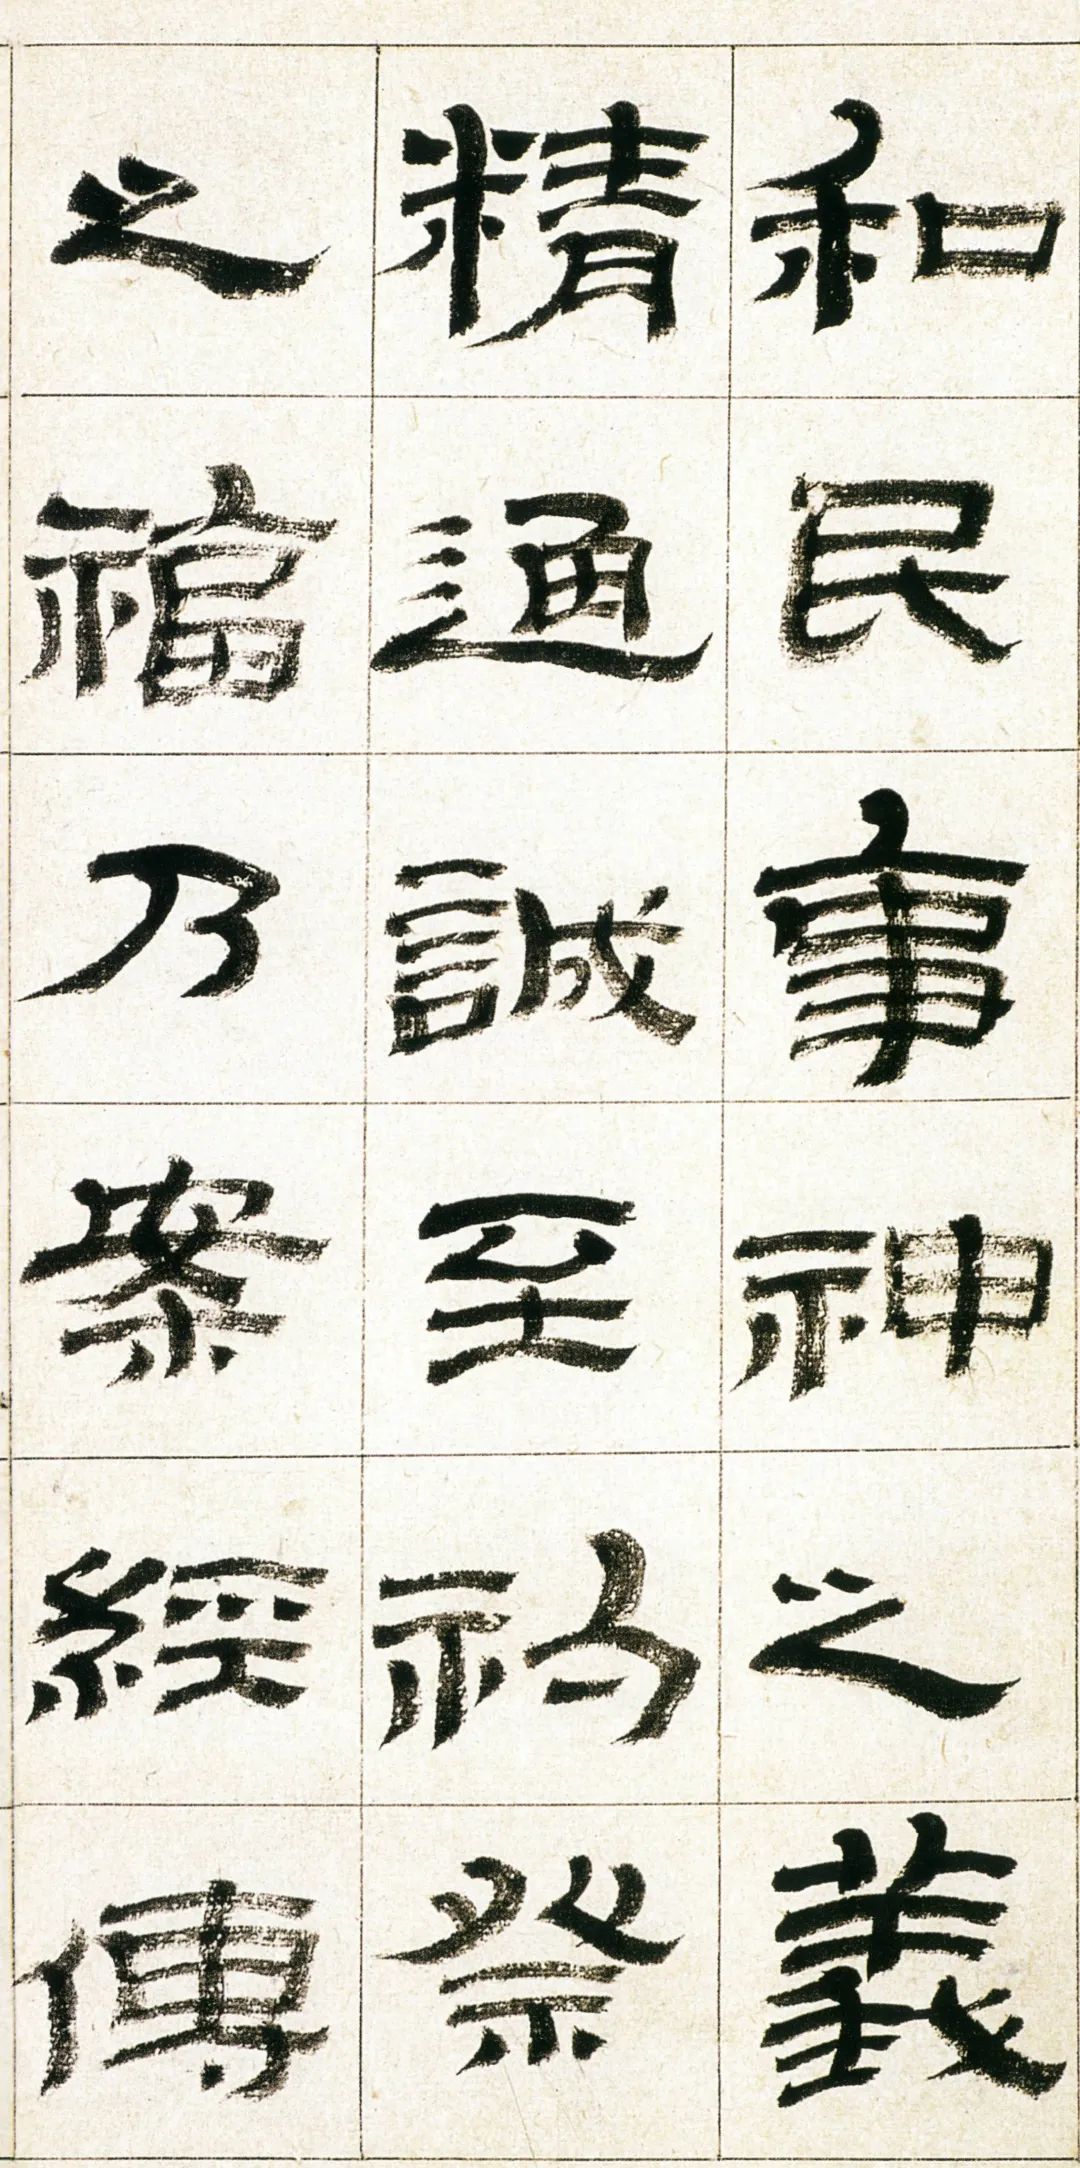 和民事神之義
精通誠至礿祭
之福乃案經傳